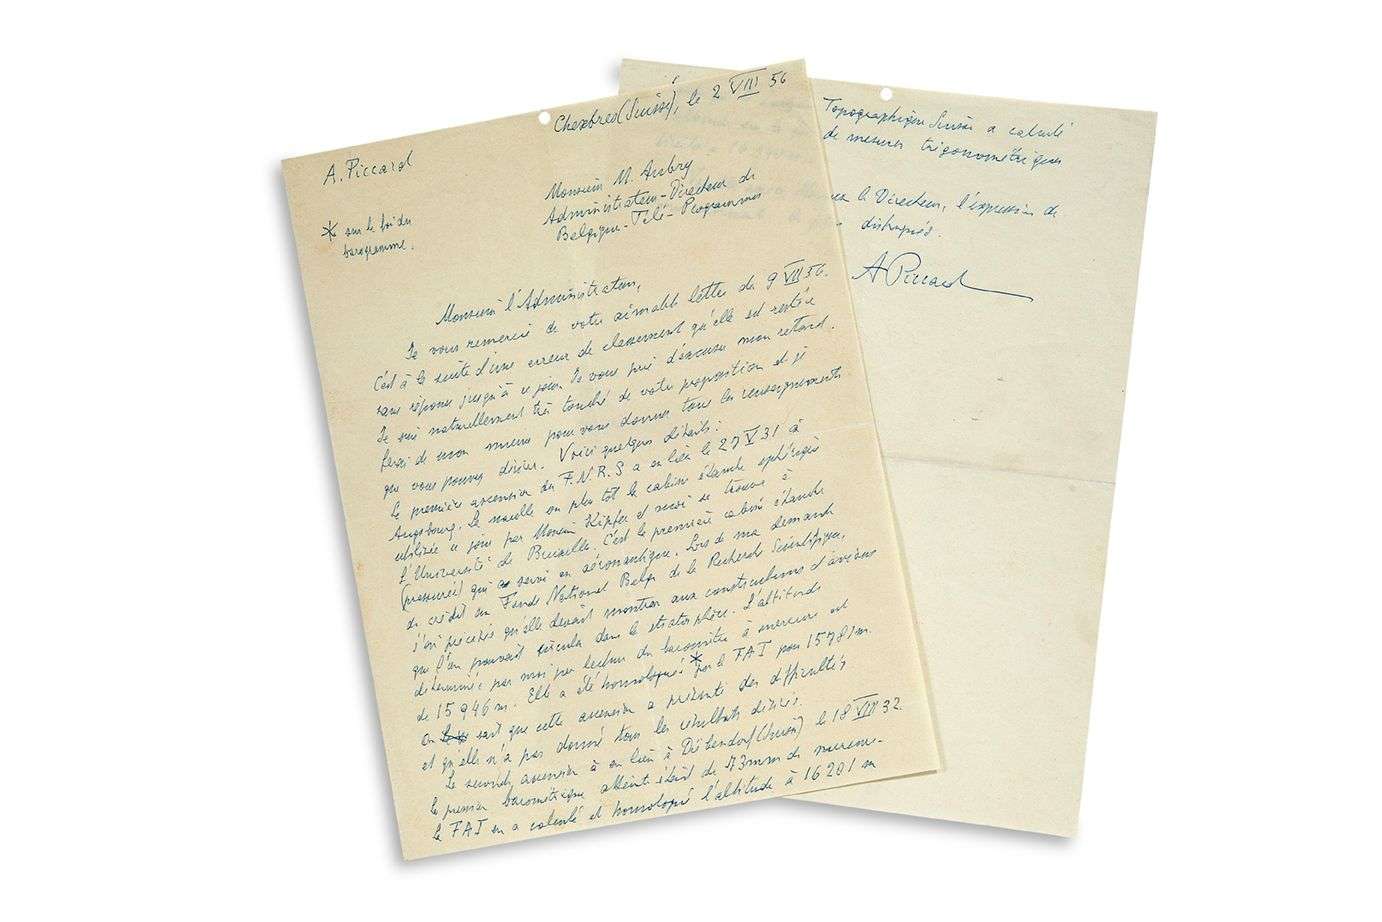 Chexbres (Suisse), le 2 VIII 56
A. Piccard
Monsieur M. Aubry
Administrateur-Directeur de
Belgique-Télé-Programmes
* sur la foi du
barogramme.
Monsieur l'Administrateur,
Je vous remercie de votre aimable lettre du 9 VII 56.
C'est à la suite d'une erreur de classement qu'elle est restée
sans réponse jusqu'à ce jour. Je vous prie d'excuser mon retard.
Je suis naturellement très touché de votre proposition et je
ferai de mon mieux pour vous donner tous les renseignements
que vous pouvez désirer. Voici quelques détails:
La première ascension du F.N.R.S a eu lieu le 27 V 31 à
Augsbourg. La nacelle ou plus tôt la cabine étanche sphérique
utilisée ce jour par Monsieur Kipfer et moi se trouve à
l'Université de Bruxelles. C'est la première cabine étanche
(pressurisée) qui a servi en aéronautique. Lors de ma demande
de crédit au Fonds National Belge de la Recherche Scientifique,
j'ai précisé qu'elle devait montrer aux constructeurs d'avions
que l'on pouvait circuler dans la stratosphère. L'altitude
déterminée par moi par lecture du baromètre à mercure est
de 15 946 m. Elle a été homologuée * par la FAI pour 15 781 m.
On sait que cette ascension a présenté des difficultés
et qu'elle n'a pas donné tous les résultats désirés.
La seconde ascension a eu lieu à Dübendorf (Suisse) le 18 VIII 32.
La pression barométrique atteinte était de 73 mm de mercure.
La FAI en a calculé et homologué l'altitude à 16 201 m
Topographique Suisse a calculé
de mesures trigonométriques
le Directeur, l'expression de
distingués.
A Piccard